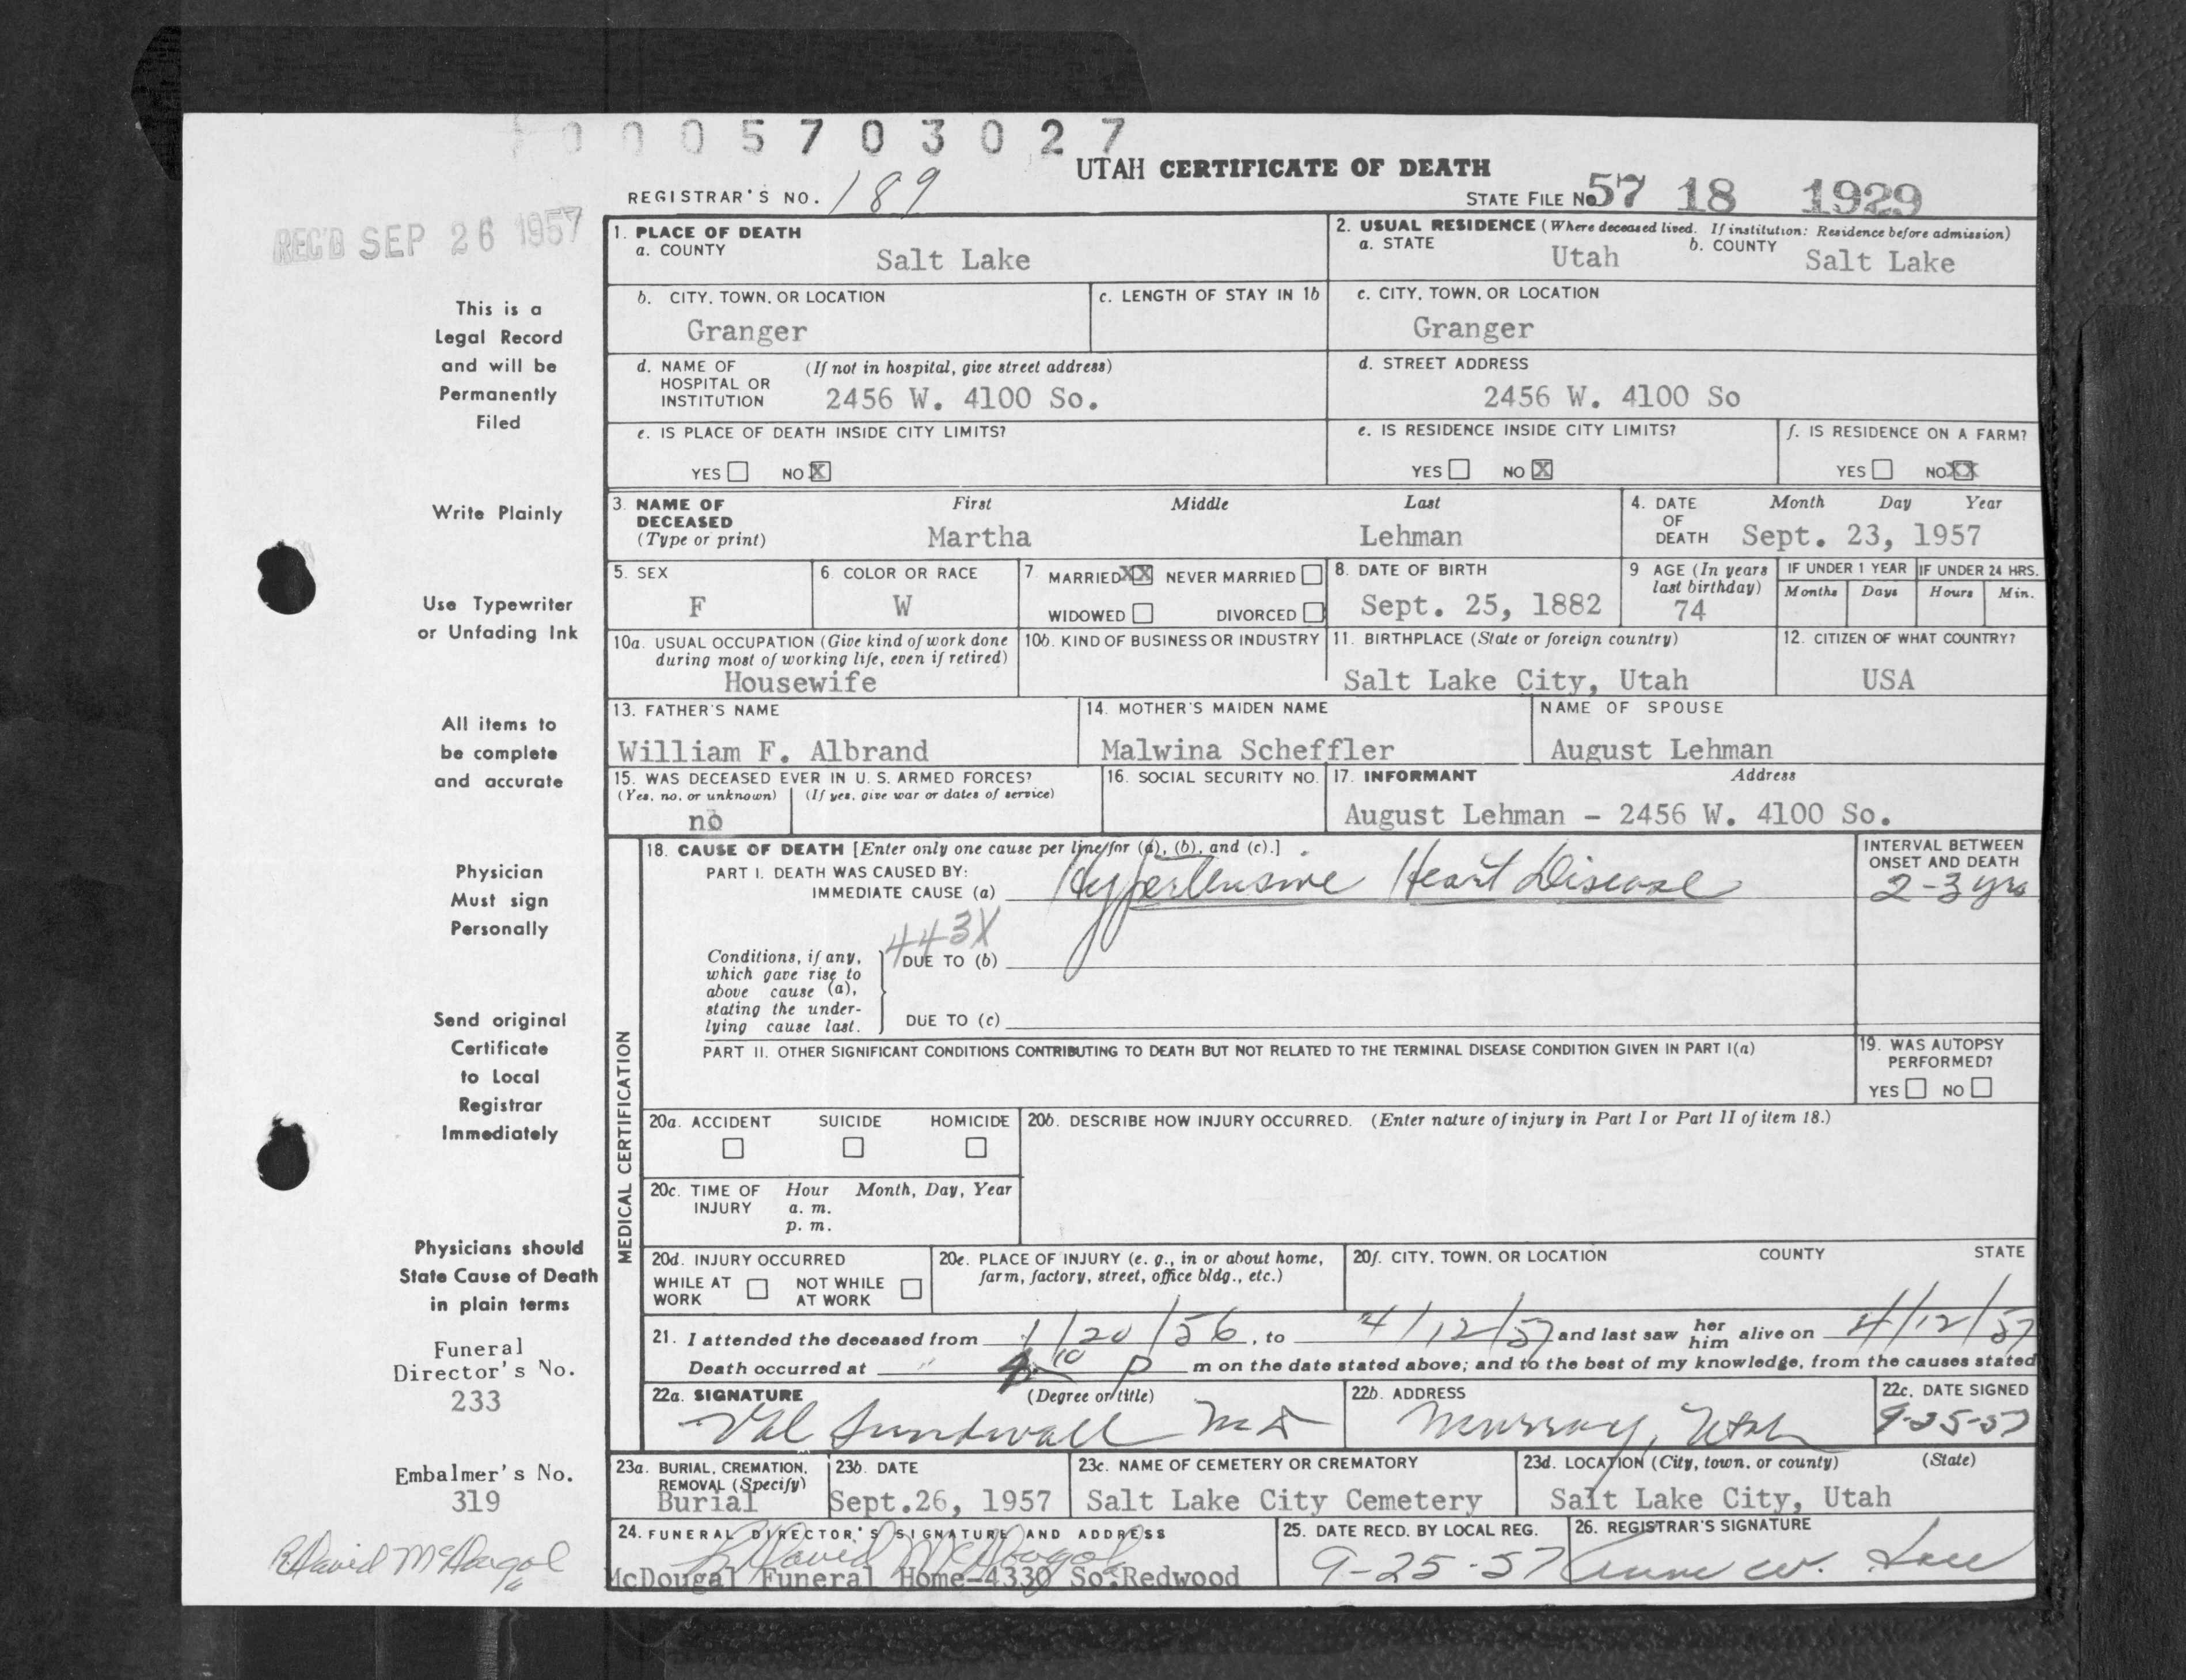 0005703027
UTAH CERTIFICATE OF DEATH
REGISTRAR'S NO. 189
STATE FILE No 57 18 1929
REC'D SEP 26 1957
This is a
Legal Record
and will be
Permanently
Filed
Write Plainly
Use Typewriter
or Unfading Ink
All items to
be complete
and accurate
Physician
Must sign
Personally
Send original
Certificate
to Local
Registrar
Immediately
Physicians should
State Cause of Death
in plain terms
Funeral
Director's No.
233
Embalmer's No.
319
R. David McDougal
1. PLACE OF DEATH
a. COUNTY
Salt Lake
2. USUAL RESIDENCE (Where deceased lived. If institution: Residence before admission)
a. STATE Utah b. COUNTY Salt Lake
b. CITY, TOWN, OR LOCATION
Granger
c. LENGTH OF STAY IN 1b
c. CITY, TOWN, OR LOCATION
Granger
d. NAME OF (If not in hospital, give street address)
HOSPITAL OR
INSTITUTION 2456 W. 4100 So.
d. STREET ADDRESS
2456 W. 4100 So
e. IS PLACE OF DEATH INSIDE CITY LIMITS?
YES NO X
e. IS RESIDENCE INSIDE CITY LIMITS?
YES NO X
f. IS RESIDENCE ON A FARM?
YES NO XX
3. NAME OF First Middle Last
DECEASED
(Type or print) Martha Lehman
4. DATE Month Day Year
OF
DEATH Sept. 23, 1957
5. SEX
F
6. COLOR OR RACE
W
7. MARRIED XX NEVER MARRIED
WIDOWED DIVORCED
8. DATE OF BIRTH
Sept. 25, 1882
9 AGE (In years
last birthday)
74
IF UNDER 1 YEAR IF UNDER 24 HRS.
Months Days Hours Min.
10a. USUAL OCCUPATION (Give kind of work done
during most of working life, even if retired)
Housewife
10b. KIND OF BUSINESS OR INDUSTRY
11. BIRTHPLACE (State or foreign country)
Salt Lake City, Utah
12. CITIZEN OF WHAT COUNTRY?
USA
13. FATHER'S NAME
William F. Albrand
14. MOTHER'S MAIDEN NAME
Malwina Scheffler
NAME OF SPOUSE
August Lehman
15. WAS DECEASED EVER IN U. S. ARMED FORCES?
(Yes, no, or unknown) (If yes, give war or dates of service)
no
16. SOCIAL SECURITY NO.
17. INFORMANT Address
August Lehman - 2456 W. 4100 So.
MEDICAL CERTIFICATION
18. CAUSE OF DEATH [Enter only one cause per line for (a), (b), and (c).]
PART I. DEATH WAS CAUSED BY:
IMMEDIATE CAUSE (a) Hypertensive Heart Disease
INTERVAL BETWEEN
ONSET AND DEATH
2-3 yrs
443X
Conditions, if any,
which gave rise to
above cause (a),
stating the under-
lying cause last.
DUE TO (b)
DUE TO (c)
PART II. OTHER SIGNIFICANT CONDITIONS CONTRIBUTING TO DEATH BUT NOT RELATED TO THE TERMINAL DISEASE CONDITION GIVEN IN PART I(a)
19. WAS AUTOPSY
PERFORMED?
YES NO
20a. ACCIDENT SUICIDE HOMICIDE
20b. DESCRIBE HOW INJURY OCCURRED. (Enter nature of injury in Part I or Part II of item 18.)
20c. TIME OF Hour Month, Day, Year
INJURY a. m.
p. m.
20d. INJURY OCCURRED
WHILE AT NOT WHILE
WORK AT WORK
20e. PLACE OF INJURY (e. g., in or about home,
farm, factory, street, office bldg., etc.)
20f. CITY, TOWN, OR LOCATION COUNTY STATE
21. I attended the deceased from 1/20/56, to 4/12/57 and last saw her him alive on 4/12/57
Death occurred at 10 p m on the date stated above; and to the best of my knowledge, from the causes stated
22a. SIGNATURE (Degree or title)
Val Sundwall MD
22b. ADDRESS
Murray, Utah
22c. DATE SIGNED
9-25-57
23a. BURIAL, CREMATION,
REMOVAL (Specify)
Burial
23b. DATE
Sept.26, 1957
23c. NAME OF CEMETERY OR CREMATORY
Salt Lake City Cemetery
23d. LOCATION (City, town, or county) (State)
Salt Lake City, Utah
24. FUNERAL DIRECTOR'S SIGNATURE AND ADDRESS
R. David McDougal
McDougal Funeral Home-4330 So.Redwood
25. DATE RECD. BY LOCAL REG.
9-25-57
26. REGISTRAR'S SIGNATURE
W.